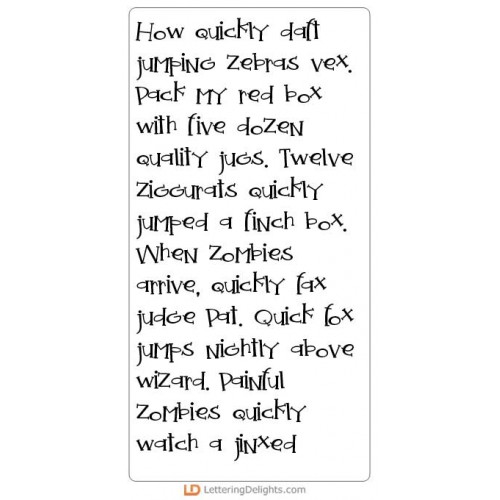 How quickly daft
jumping zebras vex.
Pack my red box
with five dozen
quality jugs. Twelve
ziggurats quickly
jumped a finch box.
When zombies
arrive, quickly fax
judge Pat. Quick fox
jumps nightly above
wizard. Painful
zombies quickly
watch a jinxed
LD LetteringDelights.com